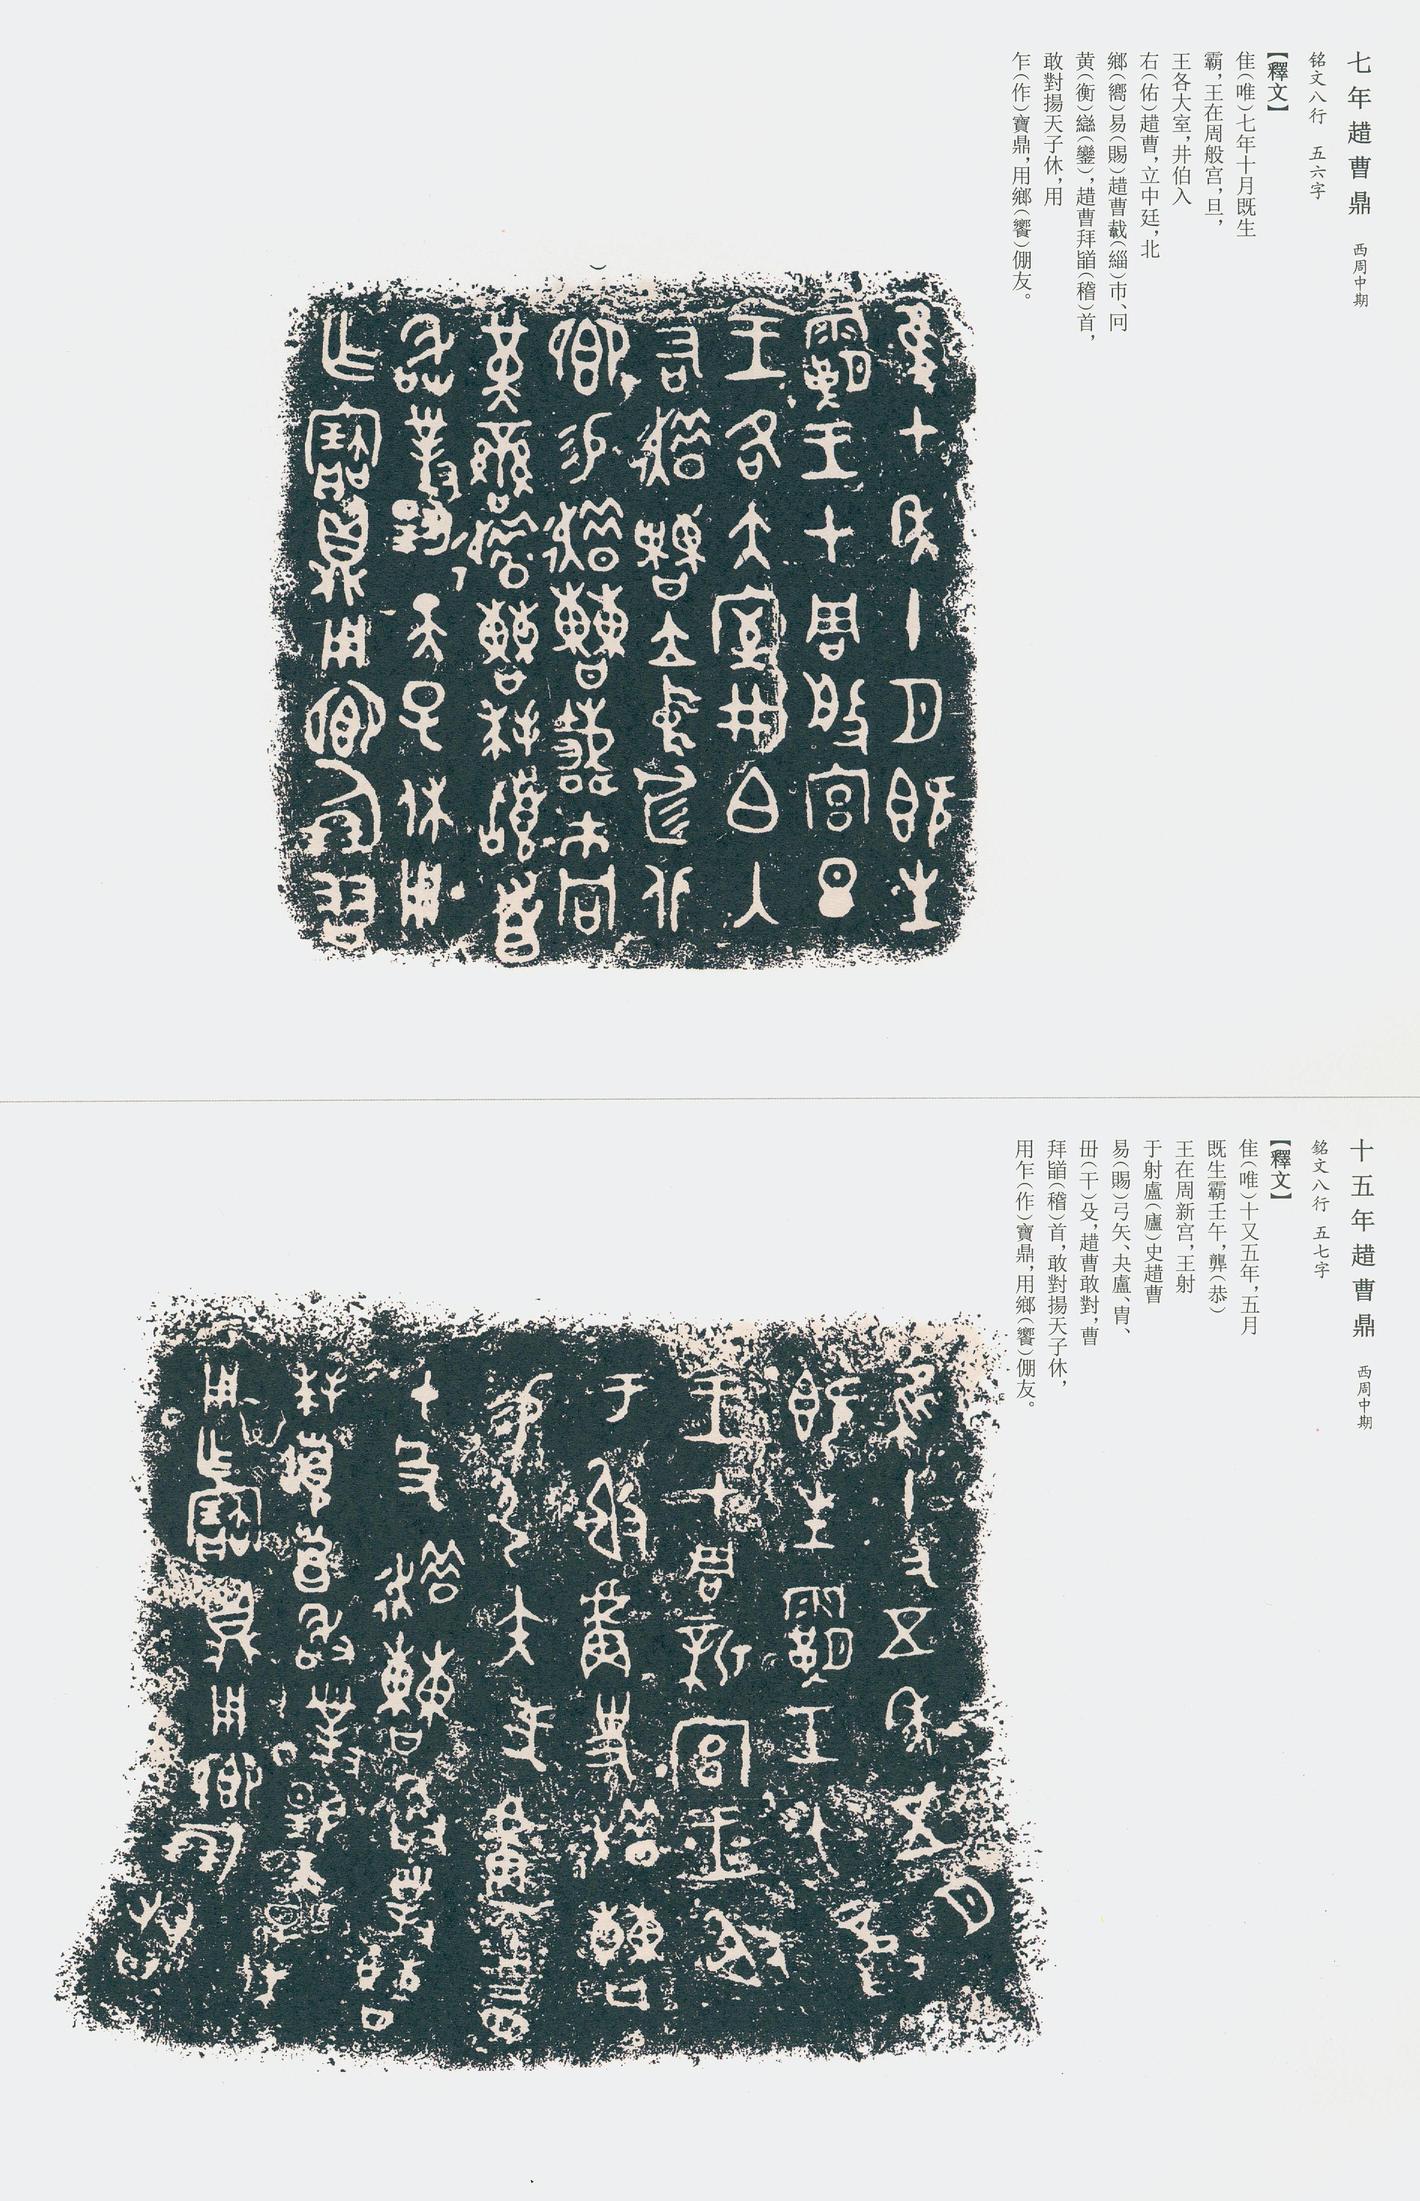 七年趞曹鼎 西周中期
銘文八行 五六字
【釋文】
隹（唯）七年十月既生
霸，王在周般宫，旦，
王各大室，井伯入
右（佑）趞曹，立中廷，北
鄉（嚮）易（賜）趞曹載（緇）巿、冋
黄（衡）䜌（鑾），趞曹拜䭫（稽）首，
敢對揚天子休，用
乍（作）寶鼎，用鄉（饗）倗友。
十五年趞曹鼎 西周中期
銘文八行 五七字
【釋文】
隹（唯）十又五年，五月
既生霸壬午，龏（恭）
王在周新宫，王射
于射盧（廬）史趞曹
易（賜）弓矢、夬盧、冑、
毌（干）殳，趞曹敢對，曹
拜䭫（稽）首，敢對揚天子休，
用乍（作）寶鼎，用鄉（饗）倗友。